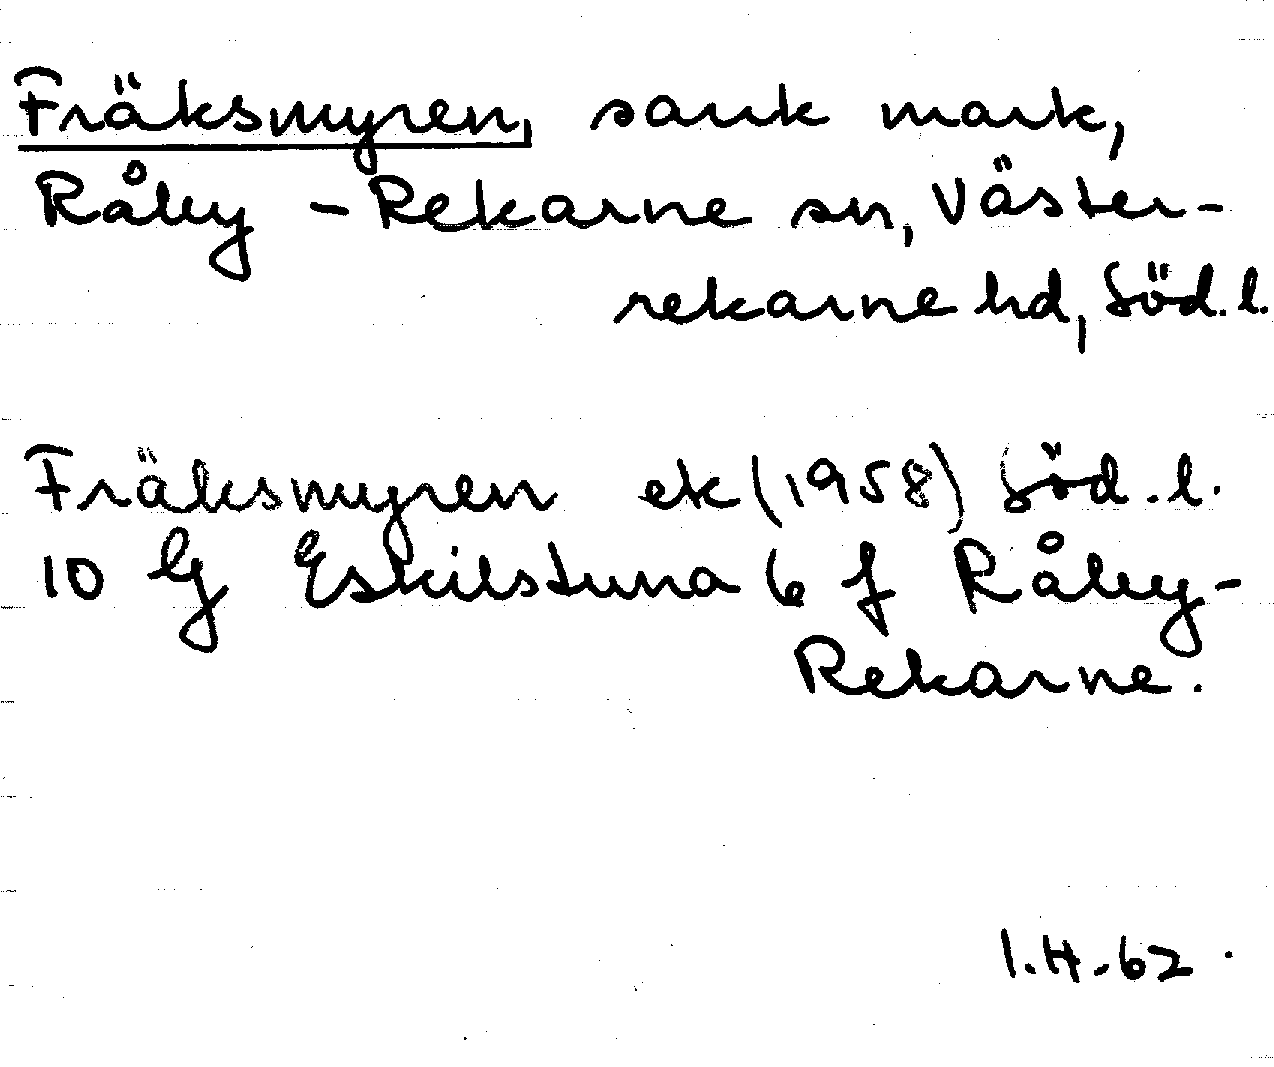 Fräksmyren, sank mark,
Råby - Rekarne sn, Väster-
rekarne hd, Söd. l.
Fräksmyren ek (1958) Söd. l.
10 G Eskilstuna 6 f Råby-
Rekarne.
I.H.-62.